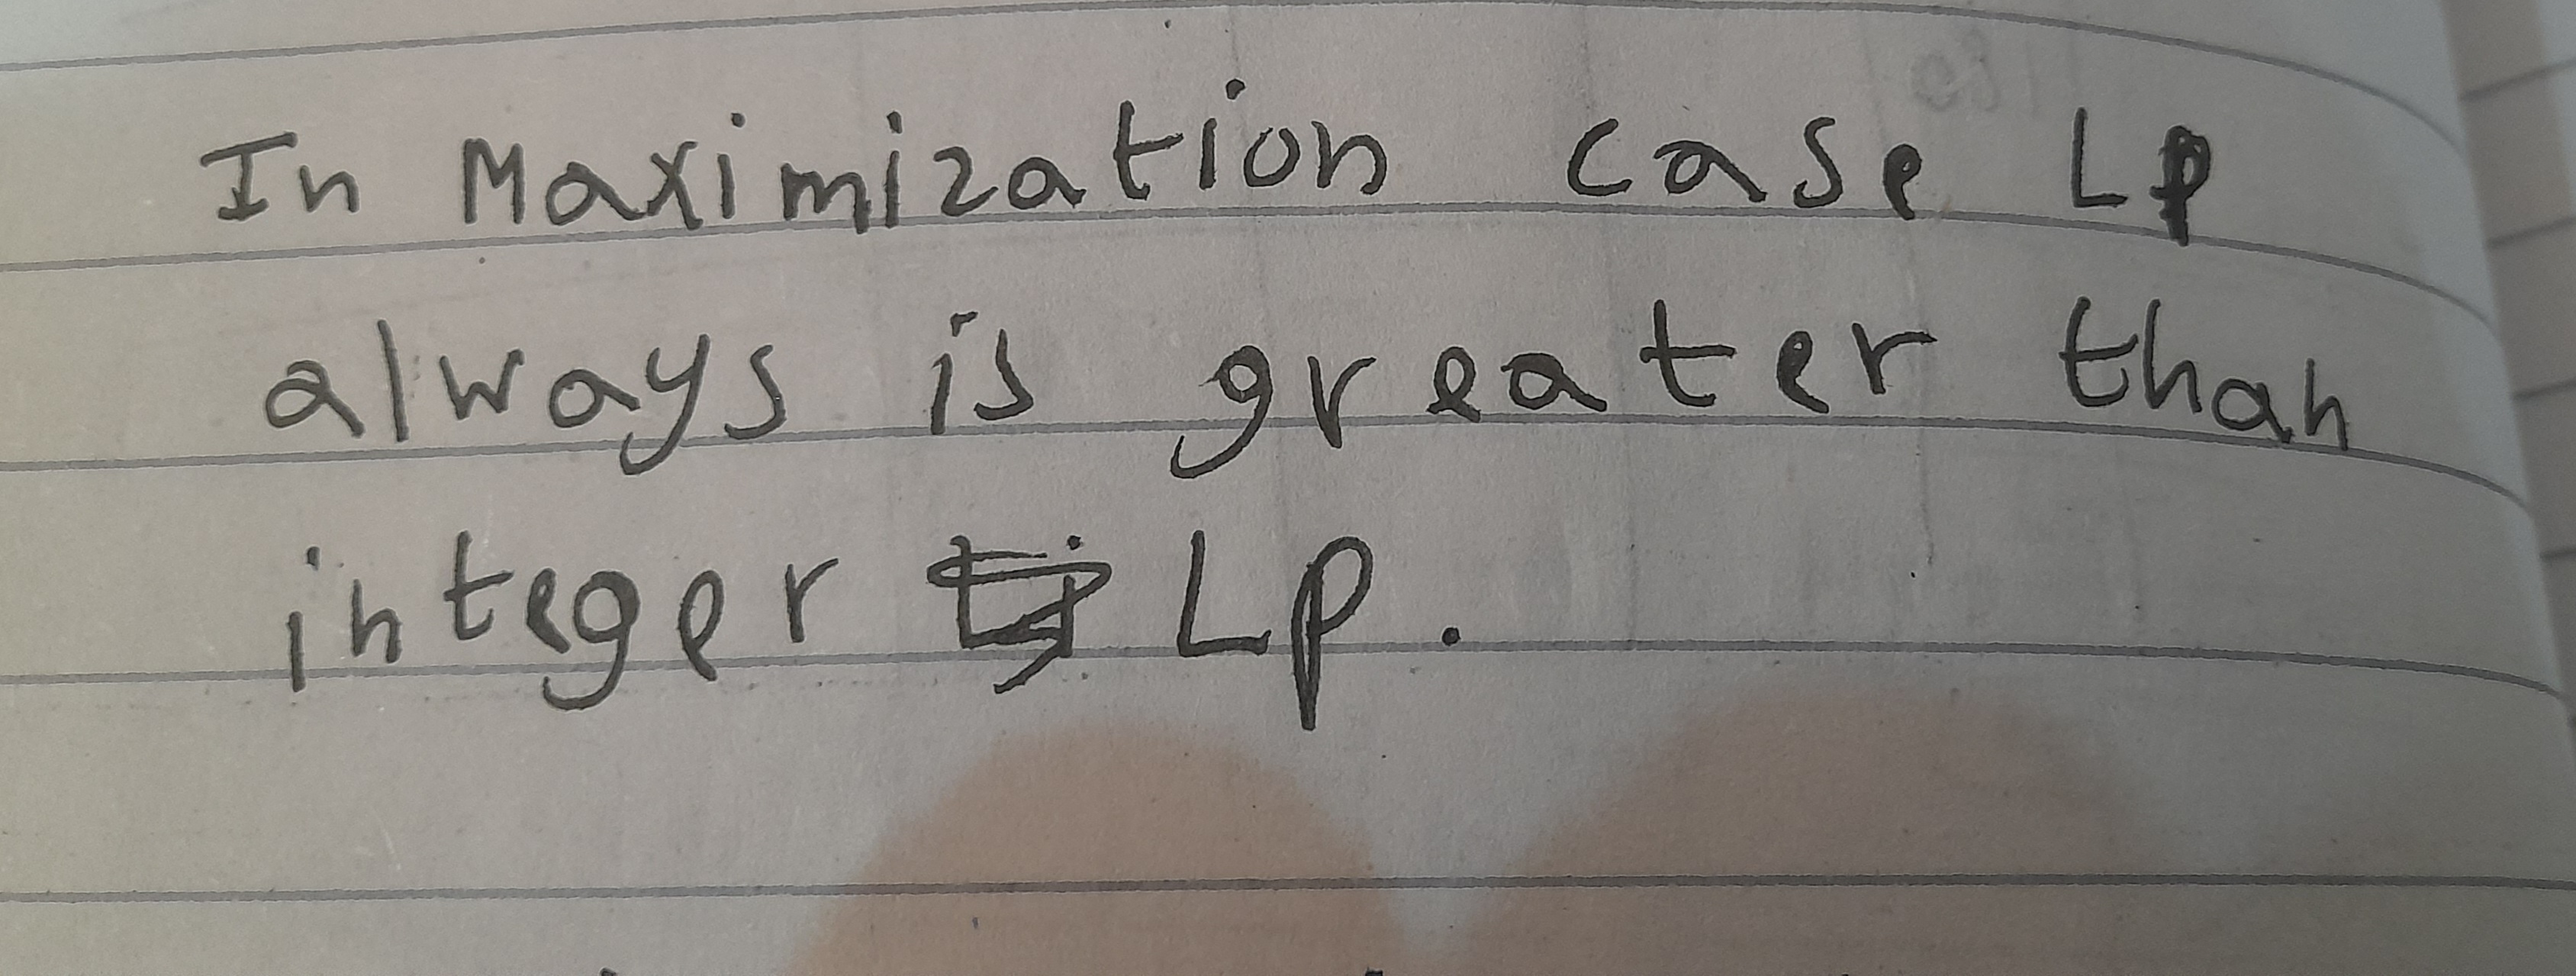 In Maximization case Lp
always is greater than
integer Lp.